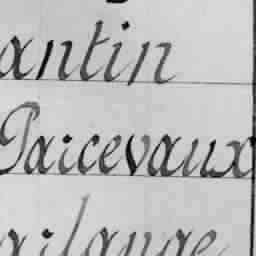 antin
Parcevaux